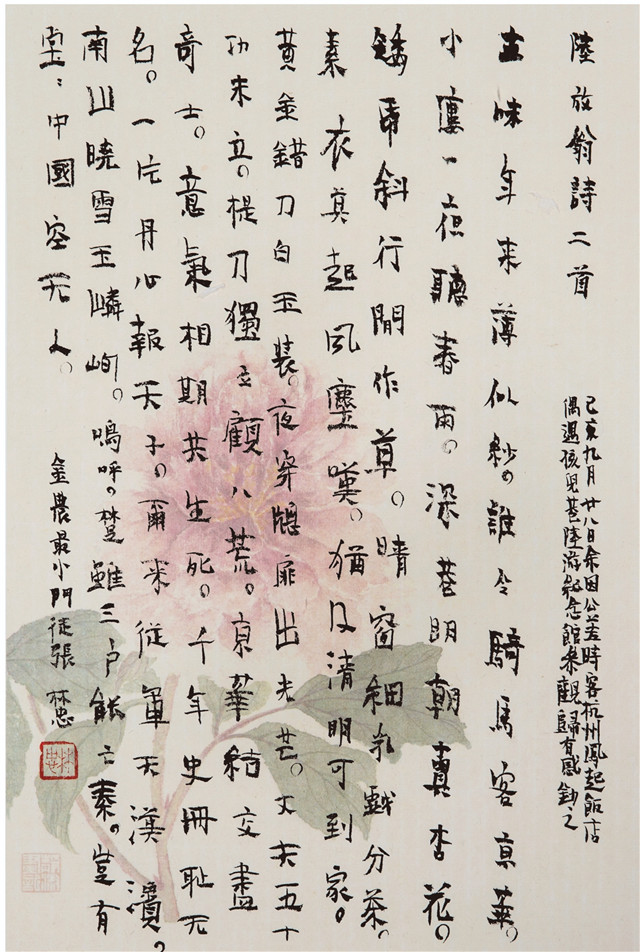 陸放翁詩二首
己亥九月廿八日余因公差時客杭州鳳起飯店
偶過孩兒巷陸游紀念館參觀歸有感鈔之
世味年来薄似紗。誰令騎馬客京華。
小樓一夜聽春雨。深巷明朝賣杏花。
矮帋斜行閒作草。晴窗細乳戲分茶。
素衣莫起風塵嘆。猶及清明可到家。
黃金錯刀白玉裝。夜穿窗扉出光芒。丈夫五十
功未立。提刀獨立顧八荒。京華結交盡
奇士。意氣相期共生死。千年史冊恥无
名。一片丹心報天子。爾来從軍天漢濱。
南山曉雪玉嶙峋。嗚呼。楚雖三户能亡秦。豈有
堂〻中國空无人。
金農最小門徒張